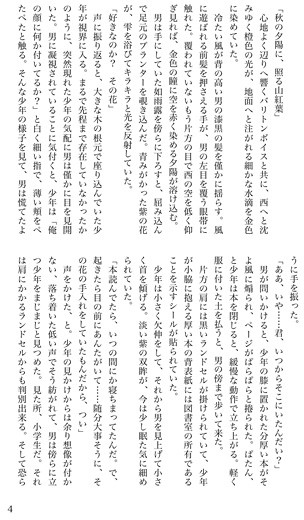 「秋の夕陽に、照る山紅葉」
　心地よく辺りへ響くバリトンボイスと共に、西へと沈
みゆく橙色の光が、地面へと注がれる細かな水滴を金色
に染めていた。
　冷たい風が背の高い男の漆黒の髪を僅かに揺らす。風
に遊ばれる前髪を押さえる手が、男の左目を覆う眼帯に
触れた。覆われていないもう片方の目で西の空を低く仰
ぎ見れば、金色の瞳に空を赤く染める夕陽が溶け込む。
　男は手にしていた如雨露を傍らに下ろすと、屈み込ん
で足元のプランターを覗き込んだ。青みがかった紫の花
が、雫を浴びてキラキラと光を反射していた。
「好きなのか？　その花」
　声に振り返ると、大きな木の根元で座り込んでいた少
年が視界に入る。まるで先程まで存在していなかったか
のように、突然現れた少年の気配に男は僅かに目を見開
いた。男に凝視されていることに気付くと、少年は「俺
の顔に何か付いてるか？」と白く細い指で、薄い頬をぺ
たぺたと触る。そんな少年の様子を見て、男は慌てたよ
うに手を振った。
「ああ、いや……君、いつからそこにいたんだい？」
　男が問いかけると、少年の膝に置かれた分厚い本がそ
よ風に煽られ、ページがぱらぱらと捲られた。ぱたん、
と少年は本を閉じると、緩慢な動作で立ち上がる。軽く
服に付いた土を払うと、男の傍まで歩いて来た。
　片方の肩には黒いランドセルが掛けられていて、少年
が小脇に抱える厚い本の背表紙には図書室の所有である
ことを示すシールが貼られていた。
　少年は小さく欠伸をして、それから男を見上げて小さ
く首を傾げる。淡い紫の双眸が、今は少し眠た気に細め
られていた。
「本読んでたら、いつの間にか寝ちまってたんだ。で、
起きたら目の前にあんたがいて……随分大事そうに、そ
の花の手入れをしているもんだから、つい」
　声をかけた、と、少年の見かけからは余り想像が付か
ない、落ち着いた低い声でそう紡がれて、男は傍らに立
つ少年をまじまじと見つめた。見た所、小学生だ。それ
は肩にかかるランドセルからも判別出来る。そして恐ら
4